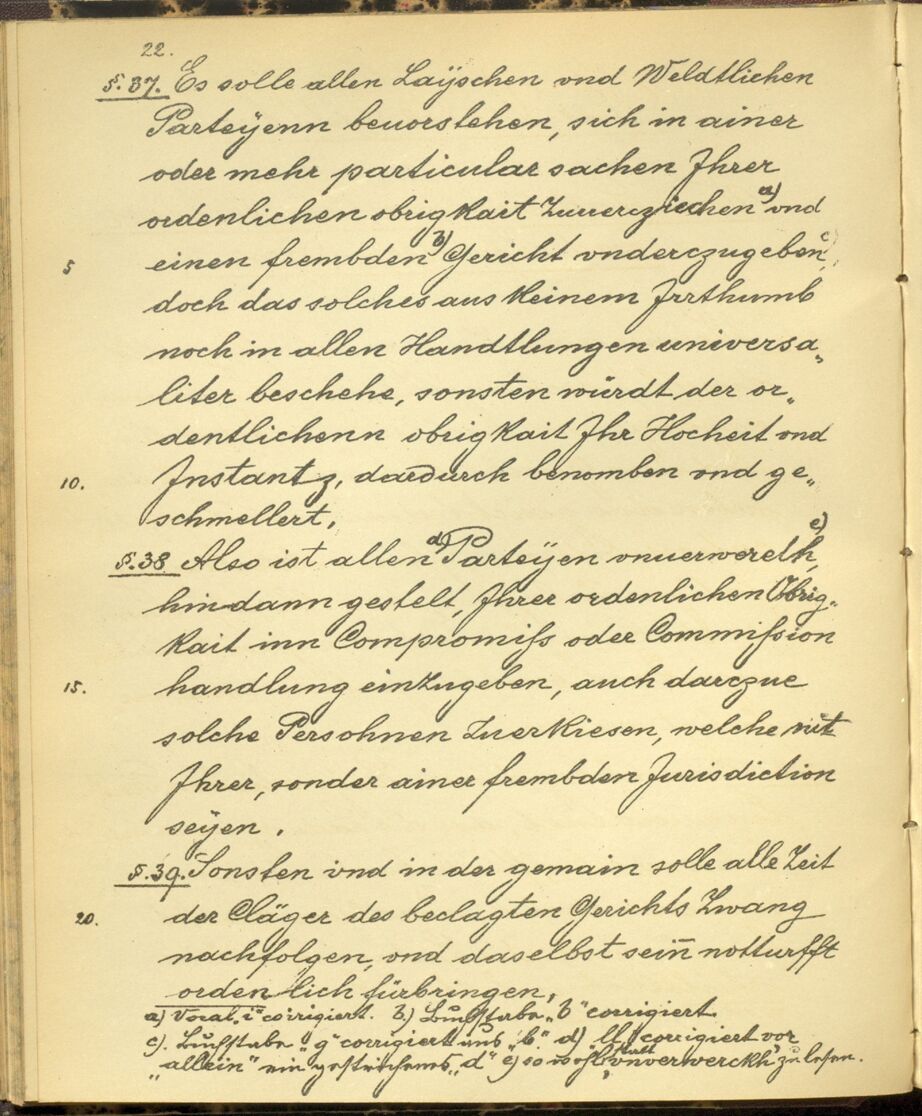 22.
§. 37. Es solle allen Laÿschen vnd Weldtlichen
Parteÿenn beuorstehen, sich in ainer
oder mehr particular sachen Jhrer
ordenlichen obrigkait Zuuerziechen a) vnd
5 einen frembden b) Gericht vnderczugeben, c)
doch das solches aus keinem Jrrthumb
noch in allen Handtlungen universa„
liter beschehe, sonsten würdt der or„
dentlichenn obrigkait Jhr Hocheit vnd
10. Jnstantz, dardurch benomben vnd ge„
schmellert.
§. 38 Also ist allen d) Parteÿen vnuerwerelh, e)
hindann gestelt, Jhrer ordenlichen Obrig„
kait inn Compromiſs oder Commiſsion
15. handlung einzugeben, auch darczue
solche Persohnen Zuerkiesen, welche nit
Jhrer, sonder ainer frembden Jurisdiction
seÿen.
§. 39. Sonsten vnd in der gemain solle alle Zeit
20. der Cläger des beclagten Gerichts Zwang
nachfolgen, vnd daselbst sein̅ notturfft
ordenlich fürbringen,
a) Vocal „i“ corrigiert. b.) Buchstabe „b“ corrigiert
c). Buchstabe „g“ corrigiert aus „b“. d) ll corrigiert vor
„allein“ ein gestrichenes „d“ e) so wohl statt „vnverwerckh“ zu lesen.